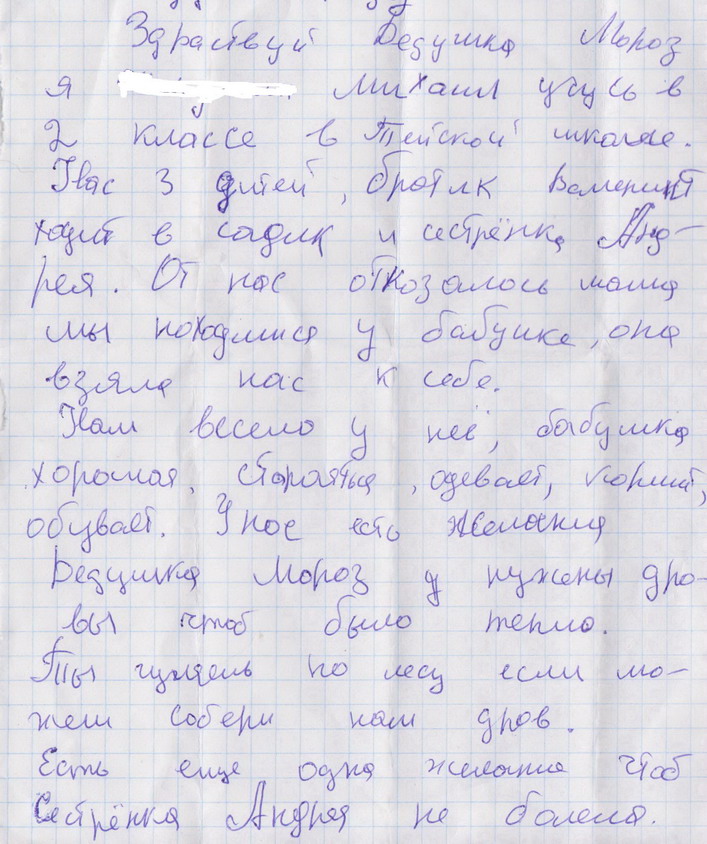 Здраствуй Дедушка Мороз
я Михаил учусь в
2 классе в Тейской школе.
Унас 3 дитей, братик Валентит
ходит в садик и сестрёнка Анд-
рея. От нас откозалось мама
мы походимся у бабушке, она
взяла нас к себе.
Нам весело у неё, бабушка
хорошая, стораятца, одевает, кормит,
обувает. Унас есть желания
Дедушка Мороз нужены дро-
вы чтоб было тепло.
Ты гуляешь по лесу если мо-
жеш собери нам дров.
Есть еще одна желания чтоб
Сестрёнка Андрея не болела.